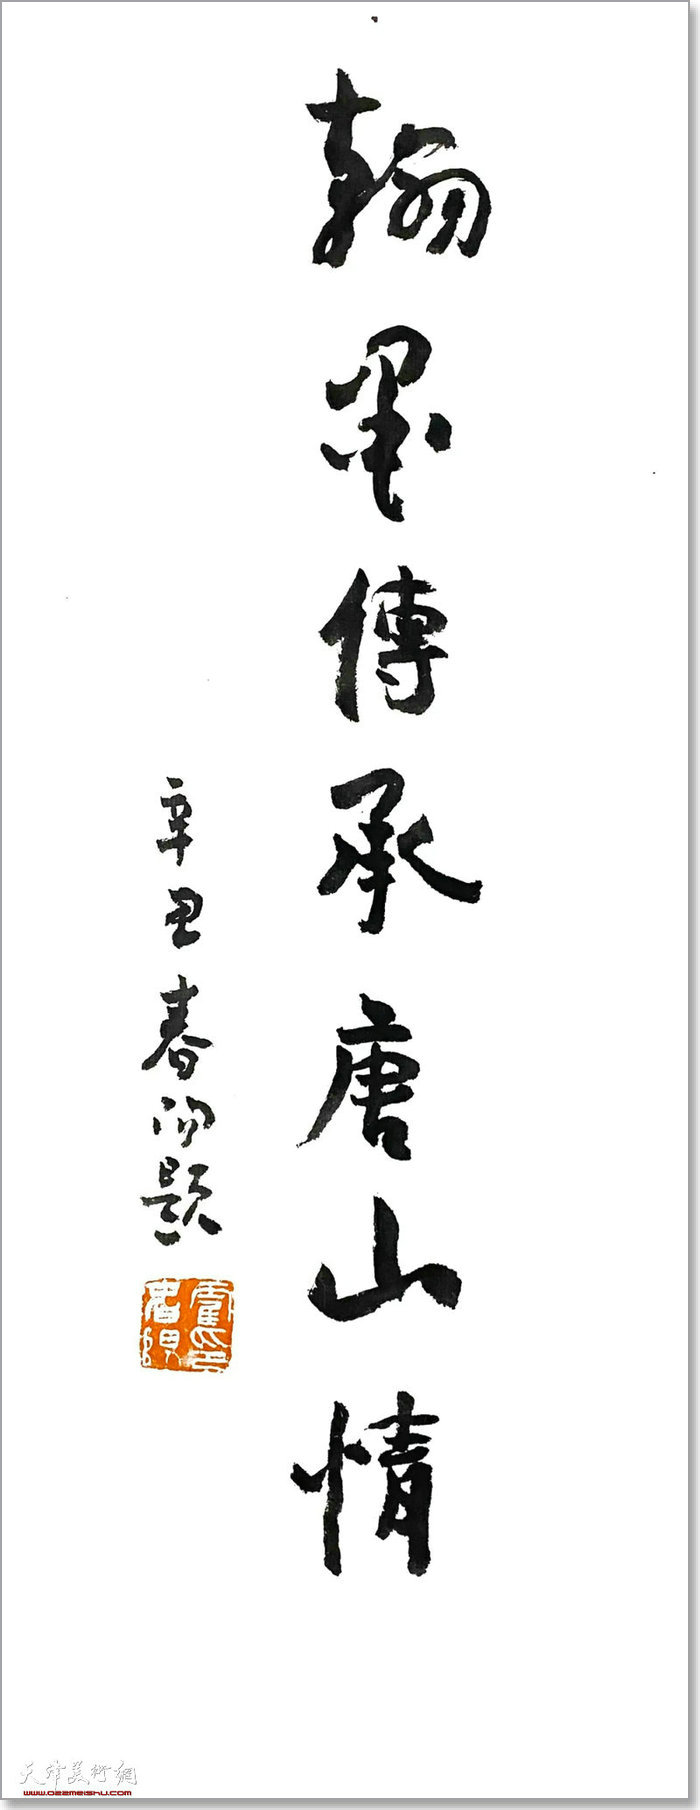 翰墨傳承唐山情
辛丑春阳題
天津美術網
www.022meishu.com